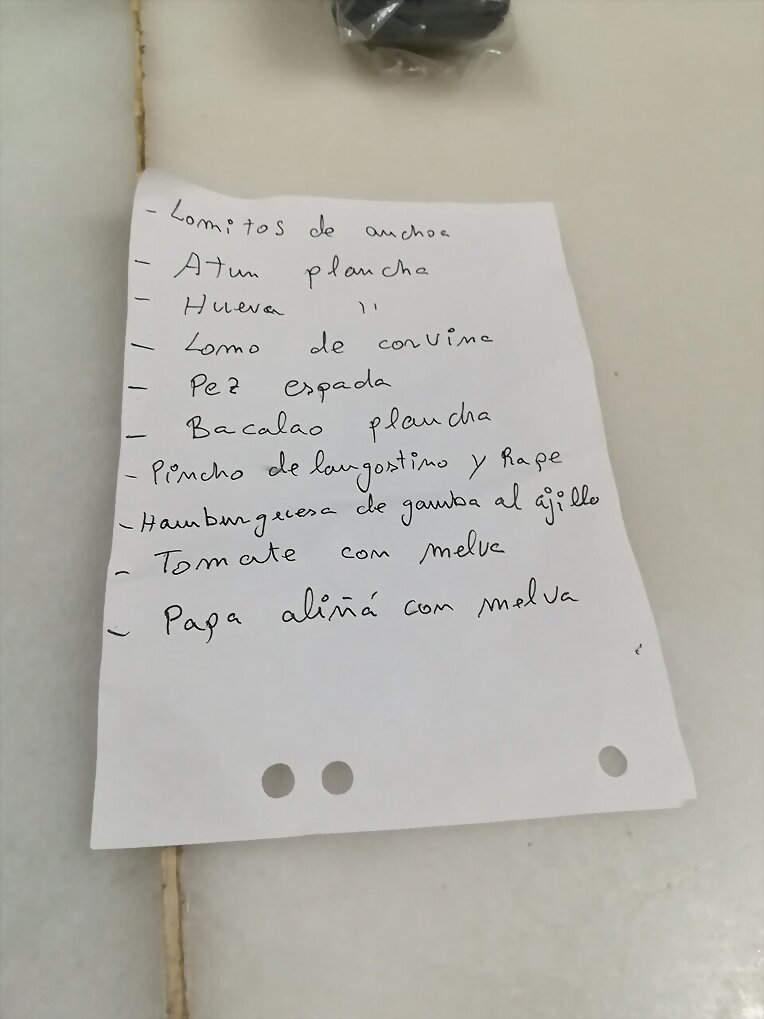 - Lomitos de anchoa
- Atun plancha
- Hueva "
- Lomo de corvina
- Pez espada
- Bacalao plancha
- Pincho de langostino y Rape
- Hamburguesa de gamba al ajillo
- Tomate con melva
- Papa aliñá con melva